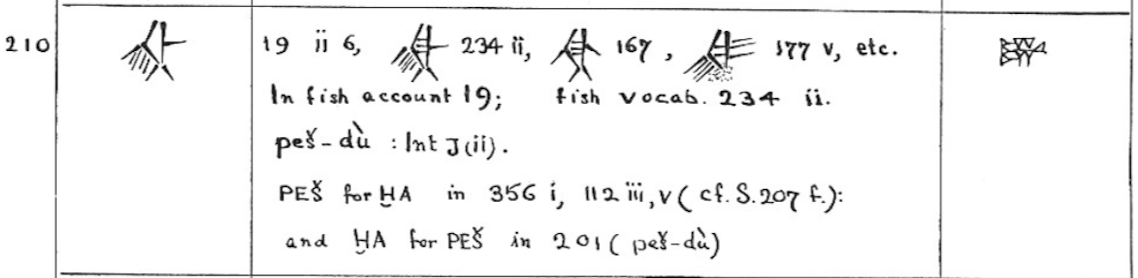 210 19 ii 6, 234 ii, 167, 177 v, etc.
In fish account 19; fish vocab. 234 ii.
peš-dù : Int J(ii).
PEŠ for ḪA in 356 i, 112 iii, v ( cf. S. 207 f.):
and ḪA for PEŠ in 201 ( peš-dù)